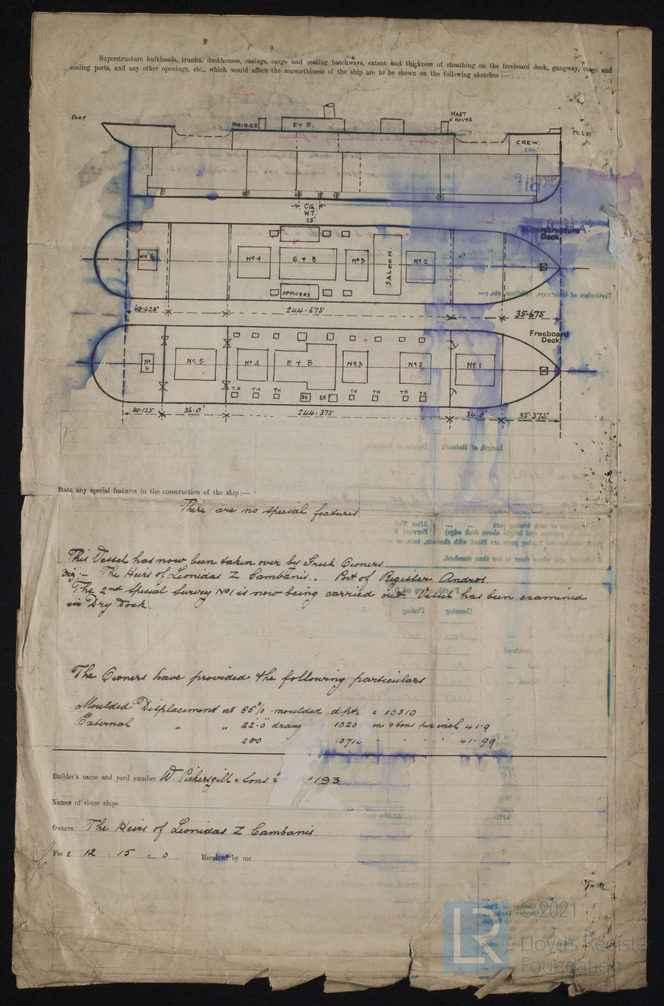 Superstructure bulkheads, trunks, deckhouses, casings, cargo and coaling hatchways, extent and thickness of sheathing on the freeboard deck, gangway, cargo and
coaling ports, and any other openings, etc., which would affect the seaworthiness of the ship are to be shown on the following sketches:—
POOP
BRIDGE
E+B
MAST HOUSE
F'CLE
CREW.
C.G.
W.T.
25'
Superstructure
Deck
Nº 6
Nº 4
E + B
Nº3
SALOON.
Nº 2
OFFICERS
40·425'
244·675
35·675
Freeboard
Deck
Nº 6
Nº 5
Nº 4
E + B
Nº3
Nº2
Nº 1
TH TH TH TH TH TH
40·125'
36·0'
244·375
36·0'
35·375'
State any special features in the construction of the ship:—
There are no special features.
This Vessel has now been taken over by Greek Owners
Viz:- The Heirs of Leonidas Z Cambanis. Port of Register Andros
The 2nd Special Survey Nº1 is now being carried out. Vessel has been examined
in Dry Dock.
The Owners have provided the following particulars
Moulded Displacement at 85% moulded dpth = 10310
External " " 22·0 draug 1020 tons per inch 41·9
41·99
Builder's name and yard number W. Pickersgill & Sons 193
Names of sister ships
Owners The Heirs of Leonidas Z Cambanis
Fee £ 12 : 15 : 0 Received by me
© 2021
LR
Lloyd's Register
Foundation